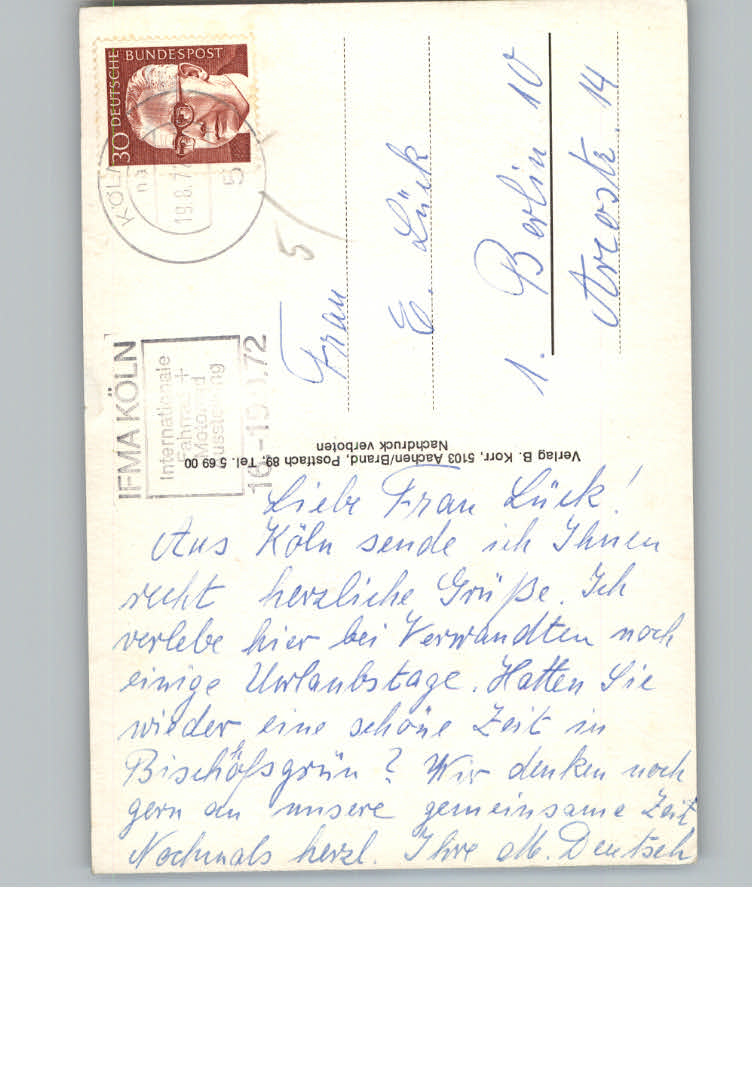 DEUTSCHE BUNDESPOST
30
KÖLN
19.8.72
5
IFMA KÖLN
Internationale
Fahrrad- +
Motorrad
Ausstellung
.72
5
Frau
E. Lück
1. Berlin 10
Verlag B. Korr, 5103 Aachen/Brand, Postfach 89, Tel. 5 69 00
Nachdruck verboten
Liebe Frau Lück!
Aus Köln sende ich Ihnen
recht herzliche Grüße. Ich
verlebe hier bei Verwandten noch
einige Urlaubstage. Hatten Sie
wieder eine schöne Zeit in
Bischofsgrün? Wir denken noch
gern an unsere gemeinsame Zeit
Nochmals herzl. Ihre M. Deutsch